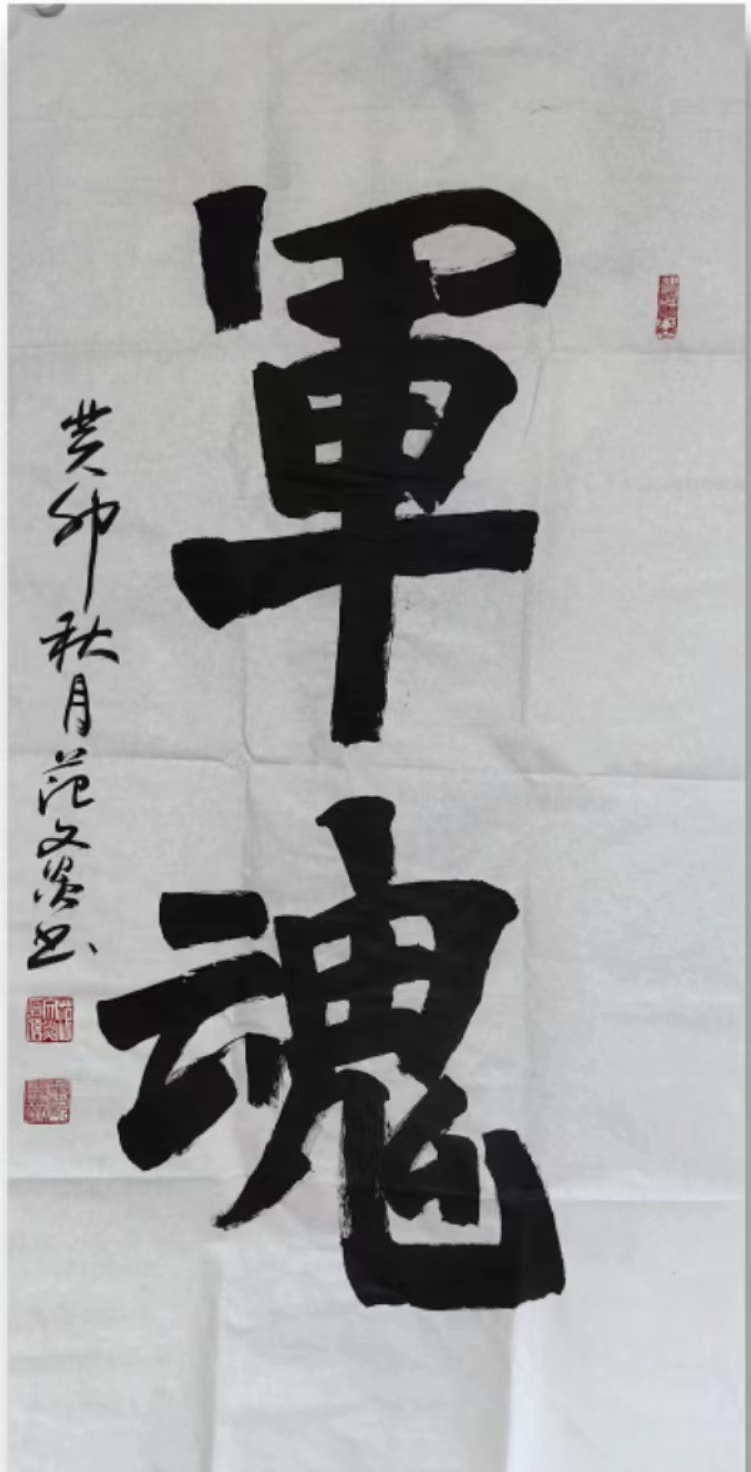 軍魂
癸卯秋月范文裕书